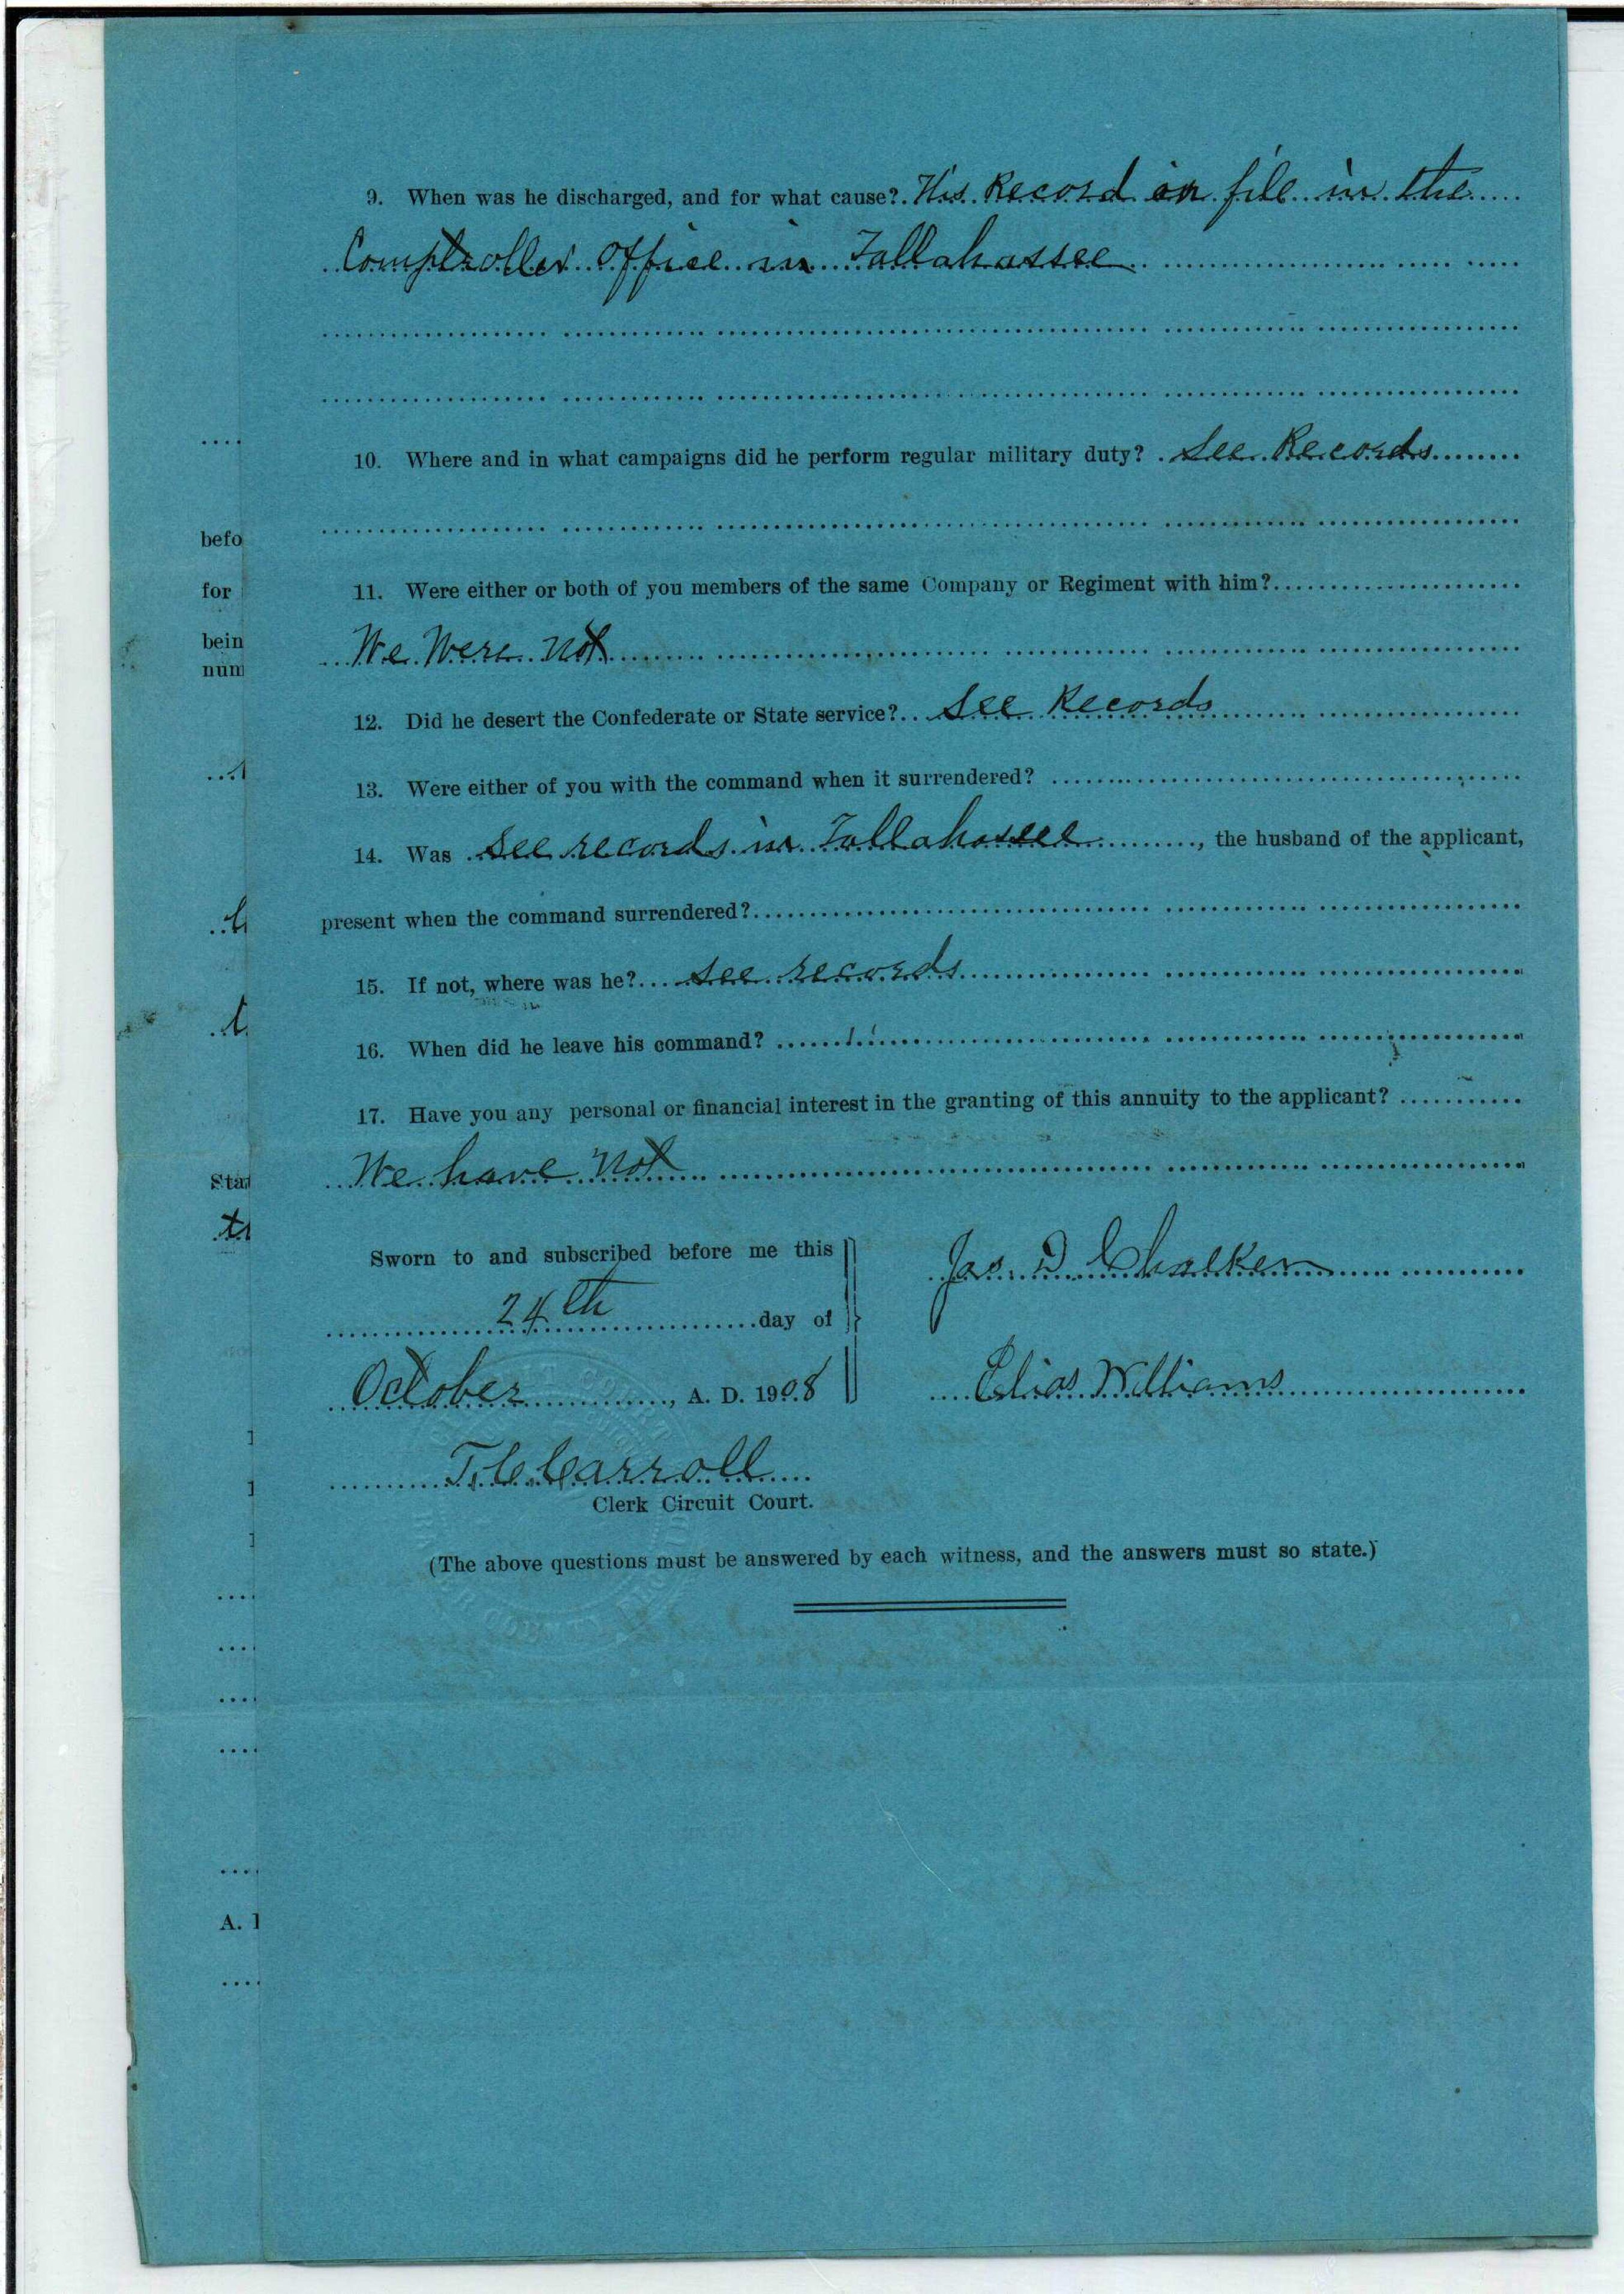 9. When was he discharged, and for what cause? His Record on file in the
Comptroller Office in Tallahassee
10. Where and in what campaigns did he perform regular military duty? See Records
11. Were either or both of you members of the same Company or Regiment with him?
We Were not
12. Did he desert the Confederate or State service? See Records
13. Were either of you with the command when it surrendered?
14. Was See records in Tallahassee, the husband of the applicant,
present when the command surrendered?
15. If not, where was he? See records
16. When did he leave his command? "
17. Have you any personal or financial interest in the granting of this annuity to the applicant?
We have not
Sworn to and subscribed before me this
24th day of
October, A. D. 1908
Jas. D. Chalker
Elias Williams
T. C. Carroll
Clerk Circuit Court.
(The above questions must be answered by each witness, and the answers must so state.)
befo
for
bein
num
Stat
A. D